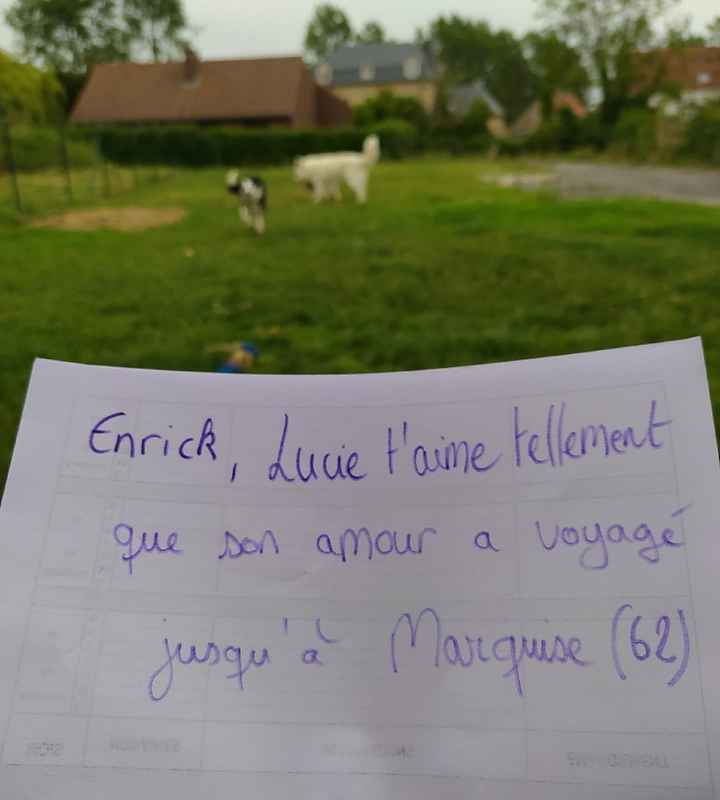 Enrick, Lucie t'aime tellement
que son amour a voyagé
jusqu'à Marquise (62)